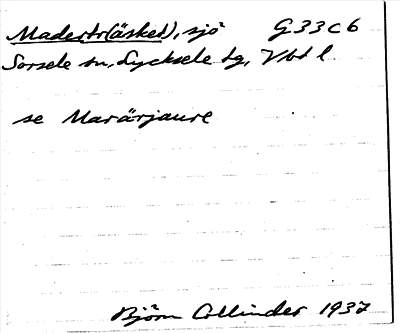 Maderträsket), sjö G33c6
Sorsele sn, Lycksele tg, Vbt l
se Marärjaure
Björn Collinder 1937